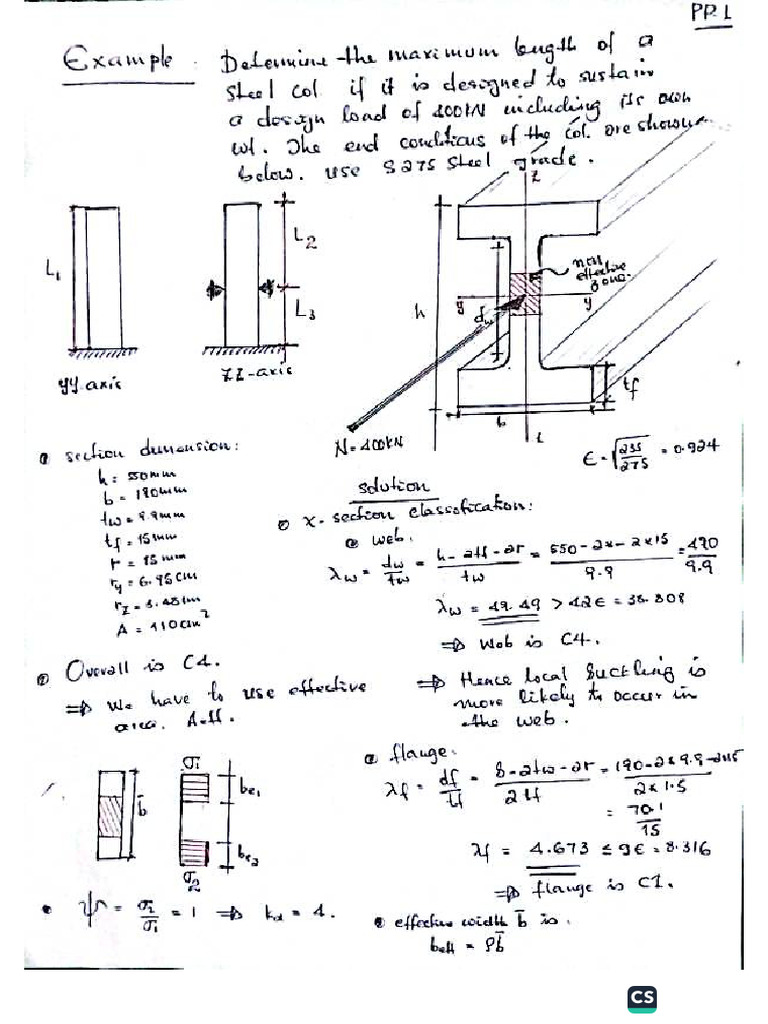 PR.1
Example. Determine the maximum length of a
steel col. if it is designed to sustain
a design load of 400kN including its own
wt. The end conditions of the col. are shown
below. use S275 steel grade.
z
L1
L2
L3
yy-axis
ZZ-axis
h
dw
y
y
non
effective
zone
tf
b
z
N=400kN
section dimension:
h = 550mm
b = 190mm
tw = 9.9mm
tf = 15mm
r = 15mm
A = 110cm²
ε = √235/275 = 0.924
solution
x-section classification:
web.
λw = dw/tw = h-2tf-2r/tw = 550-2x-2x15/9.9 = 490/9.9
λw = 49.49 > 42ε = 38.808
⇒ Web is C4.
② Overall is C4.
⇒ We have to use effective
area. Aeff.
⇒ Hence local buckling is
more likely to occur in
the web.
flange:
λf = df/tf = B-2tw-2r/2tf = 190-2x9.9-2x15/2x1.5
= 70.1/15
λf = 4.673 ≤ 9ε = 8.316
⇒ flange is C1.
b̄
σ1
be1
be2
σ2
• ψ = σ2/σ1 = 1 ⇒ kσ = 4.
effective width b̄ is.
beff = ρb̄
CS